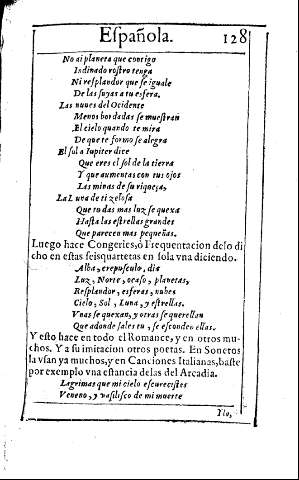 Eſpañola. 128
No ai planeta que contigo
Indinado roſtro tenga
Ni reſplandor que ſe iguale
De las ſuyas a tu esfera.
Las nuues del Ocidente
Menos bordadas ſe mueſtran
El cielo quando te mira
De que te formo ſe alegra
El ſol a Iupiter dice
Que eres el ſol de la tierra
Y que aumentas con tus ojos
Las minas de ſu riqueça,
La Luna de ti zeloſa
Que tu das mas luz ſe quexa
Haſta las eſtrellas grandes
Que parecen mas pequeñas.
Luego hace Congeries, ò Frequentacion deſo di
cho en eſtas ſeis quartetas en ſola vna diciendo.
Alba, crepuſculo, dia
Luz, Norte, ocaſo, planetas,
Reſplandor, esferas, nubes
Cielo, Sol, Luna, y eſtrellas.
Vnas ſe quexan, y otras ſe querellan
Que adonde ſales tu, ſe eſconden ellas.
Y eſto hace en todo el Romance, y en otros mu-
chos. Y a ſu imitacion otros poetas. En Sonetos
la vſan ya muchos, y en Canciones Italianas, baſte
por exemplo vna eſtancia de las del Arcadia.
Lagrimas que mi cielo eſcureciſtes
Veneno, y vaſiliſco de mi muerte
Ylo,